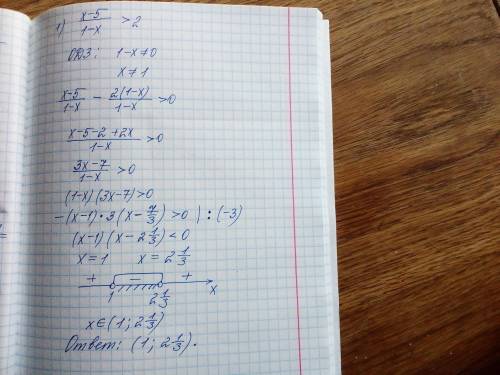 1) (x-5)/(1-x) > 2
ОДЗ: 1-x≠0
x≠1
(x-5)/(1-x) - 2(1-x)/(1-x) > 0
(x-5-2+2x)/(1-x) > 0
(3x-7)/(1-x) > 0
(1-x)(3x-7)>0
-(x-1)·3(x-7/3)>0 | :(-3)
(x-1)(x-2 1/3)<0
x=1 x=2 1/3
+ - +
1 2 1/3 x
x∈(1; 2 1/3)
Ответ: (1; 2 1/3).